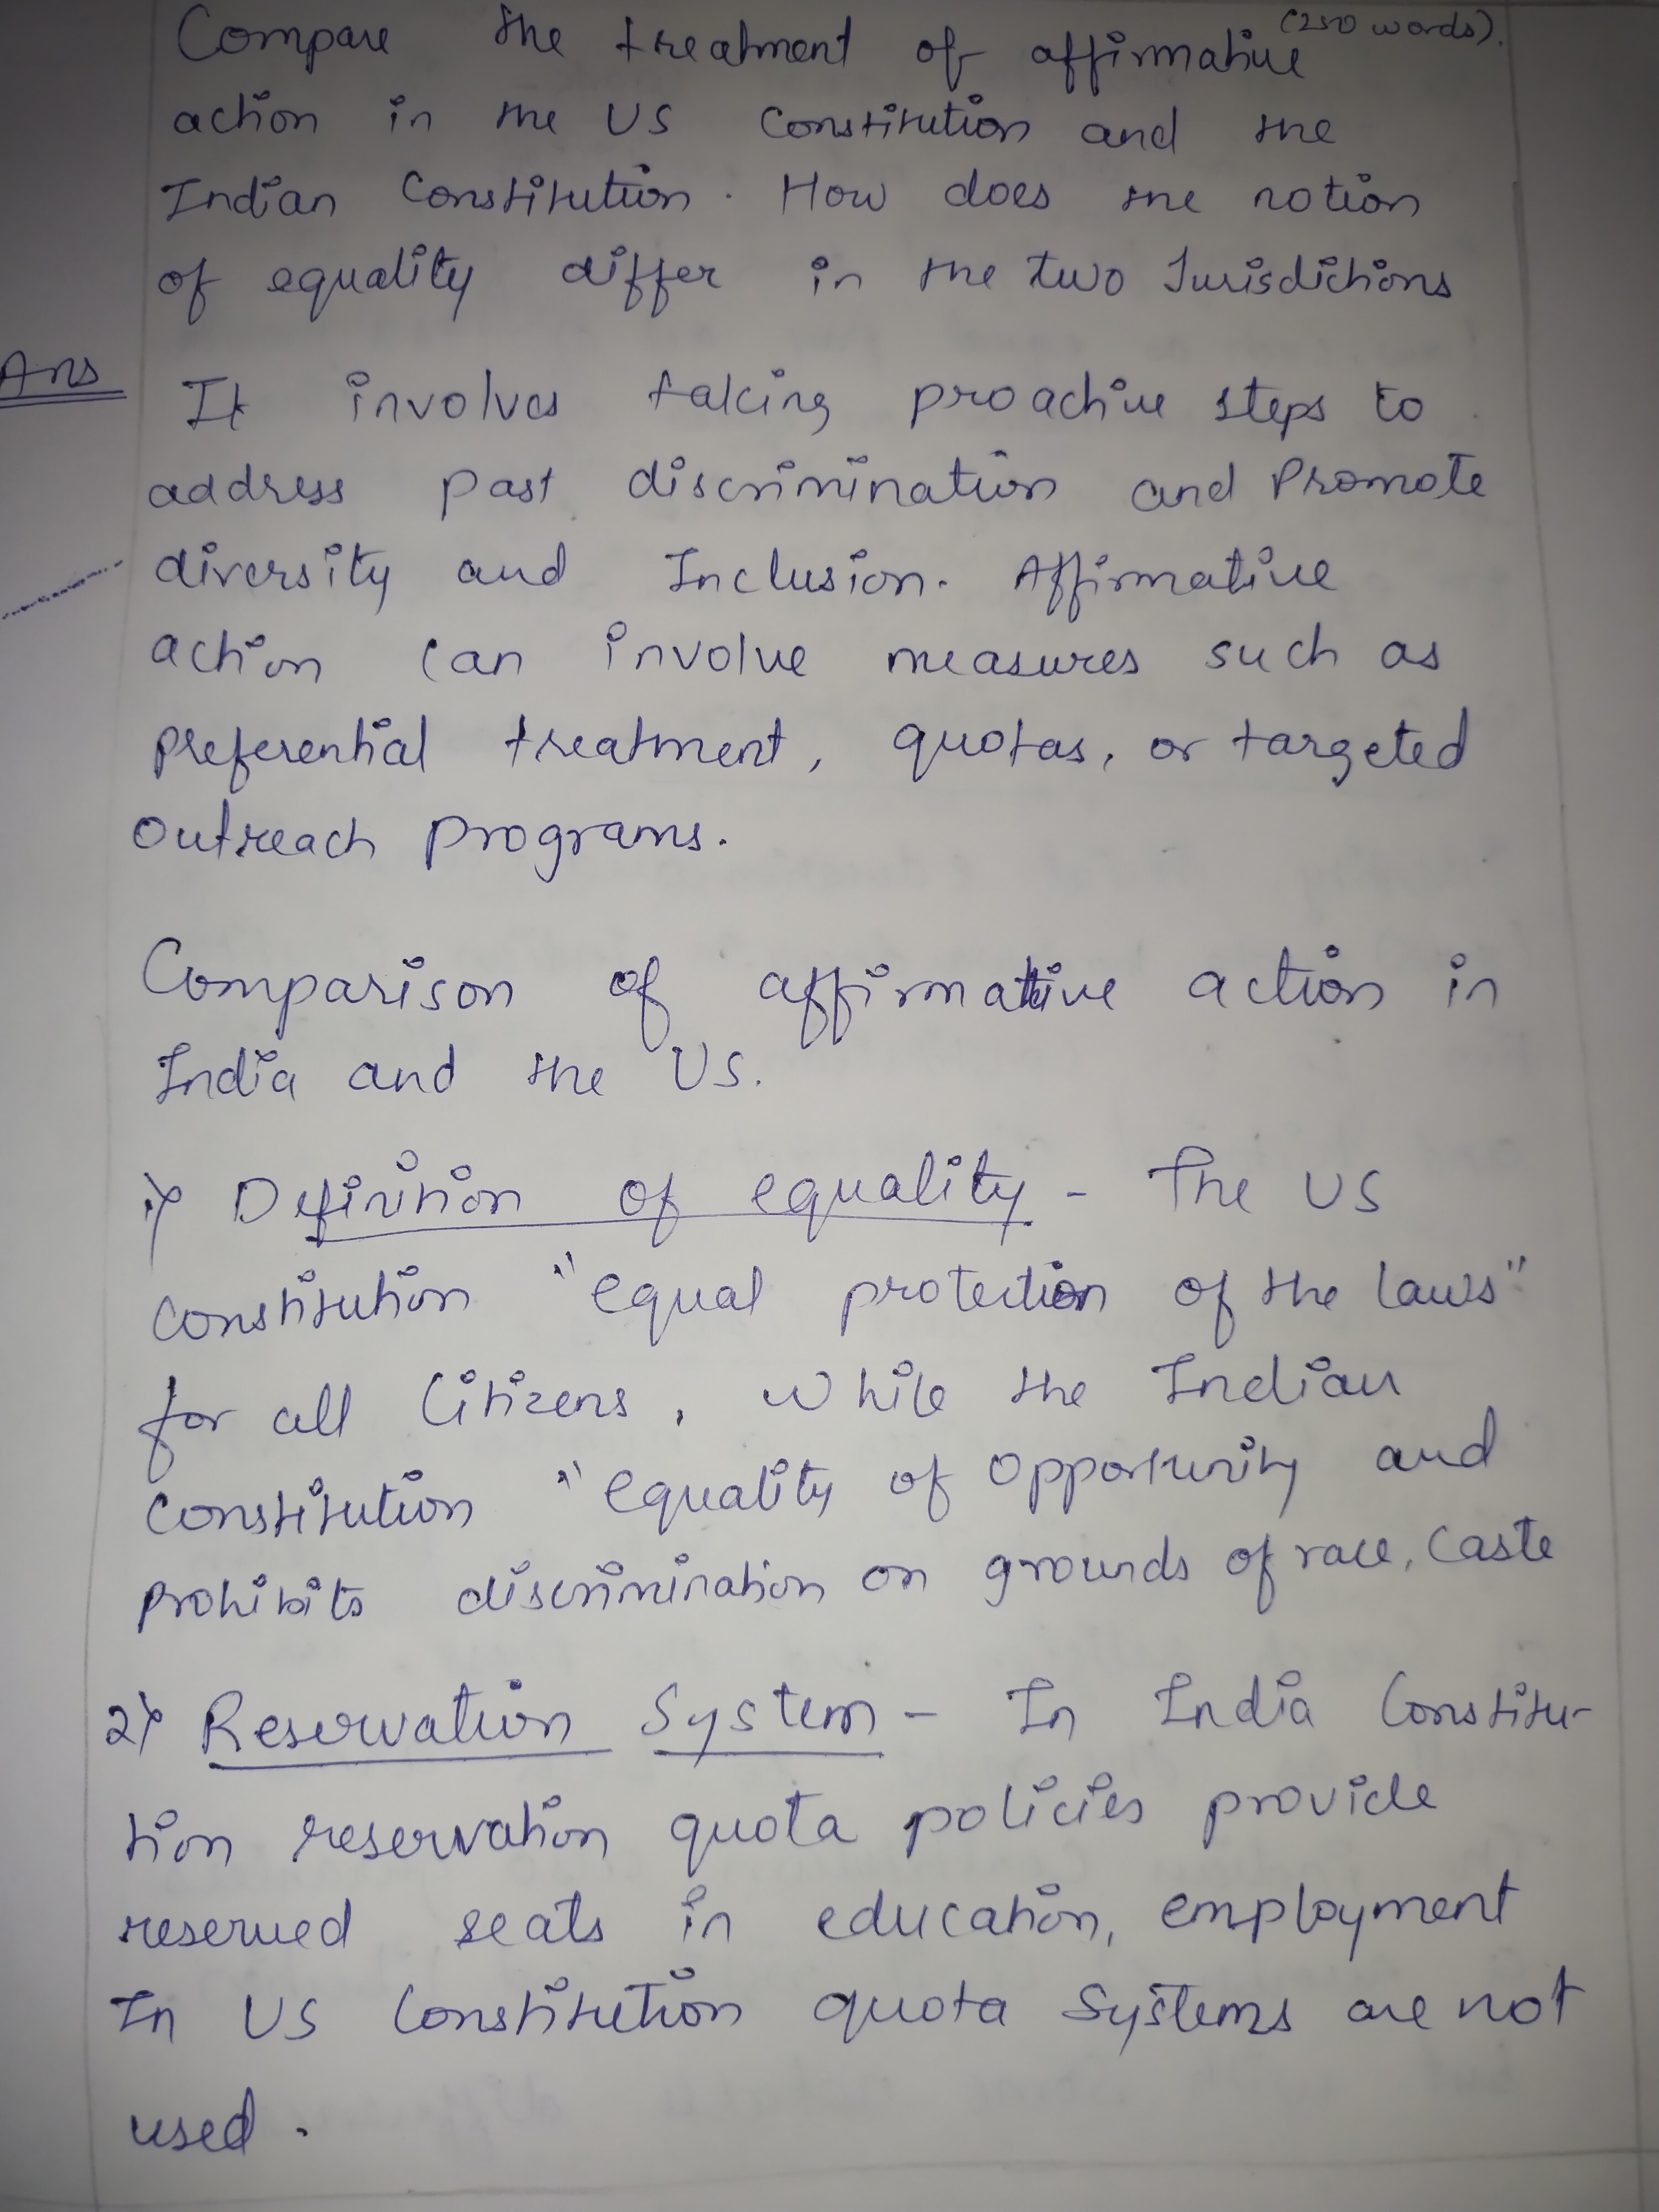 (250 words).
Compare the treatment of affirmative
action in the US Constitution and the
Indian Constitution. How does the notion
of equality differ in the two Jurisdictions
Ans
It involves taking proactive steps to
address past discrimination and Promote
diversity and Inclusion. Affirmative
action can involve measures such as
preferential treatment, quotas, or targeted
Outreach programs.
Comparison of affirmative action in
India and the US.
1) Definition of equality - The US
Constitution "equal protection of the laws"
for all Citizens, while the Indian
Constitution "equality of opportunity and
prohibits discrimination on grounds of race, Caste
2) Reservation System - In India Constitu-
tion reservation quota policies provide
reserved seats in education, employment
In US Constitution quota Systems are not
used.